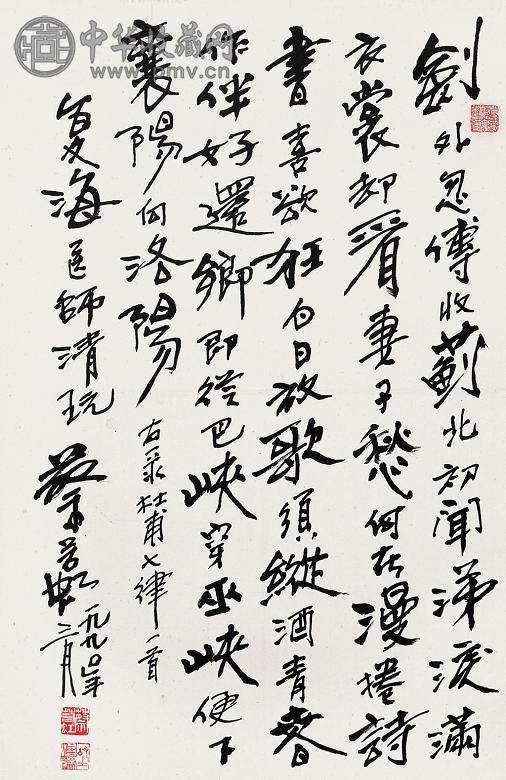 劍外忽傳收薊北初聞涕淚滿
衣裳却看妻子愁何在漫捲詩
書喜欲狂白日放歌須縱酒青春
作伴好還鄉即從巴峽穿巫峽便下
襄陽向洛陽
右录杜甫七律一首
海醫師清玩
一九九〇年
三月
中华收藏网
www.pmv.cn